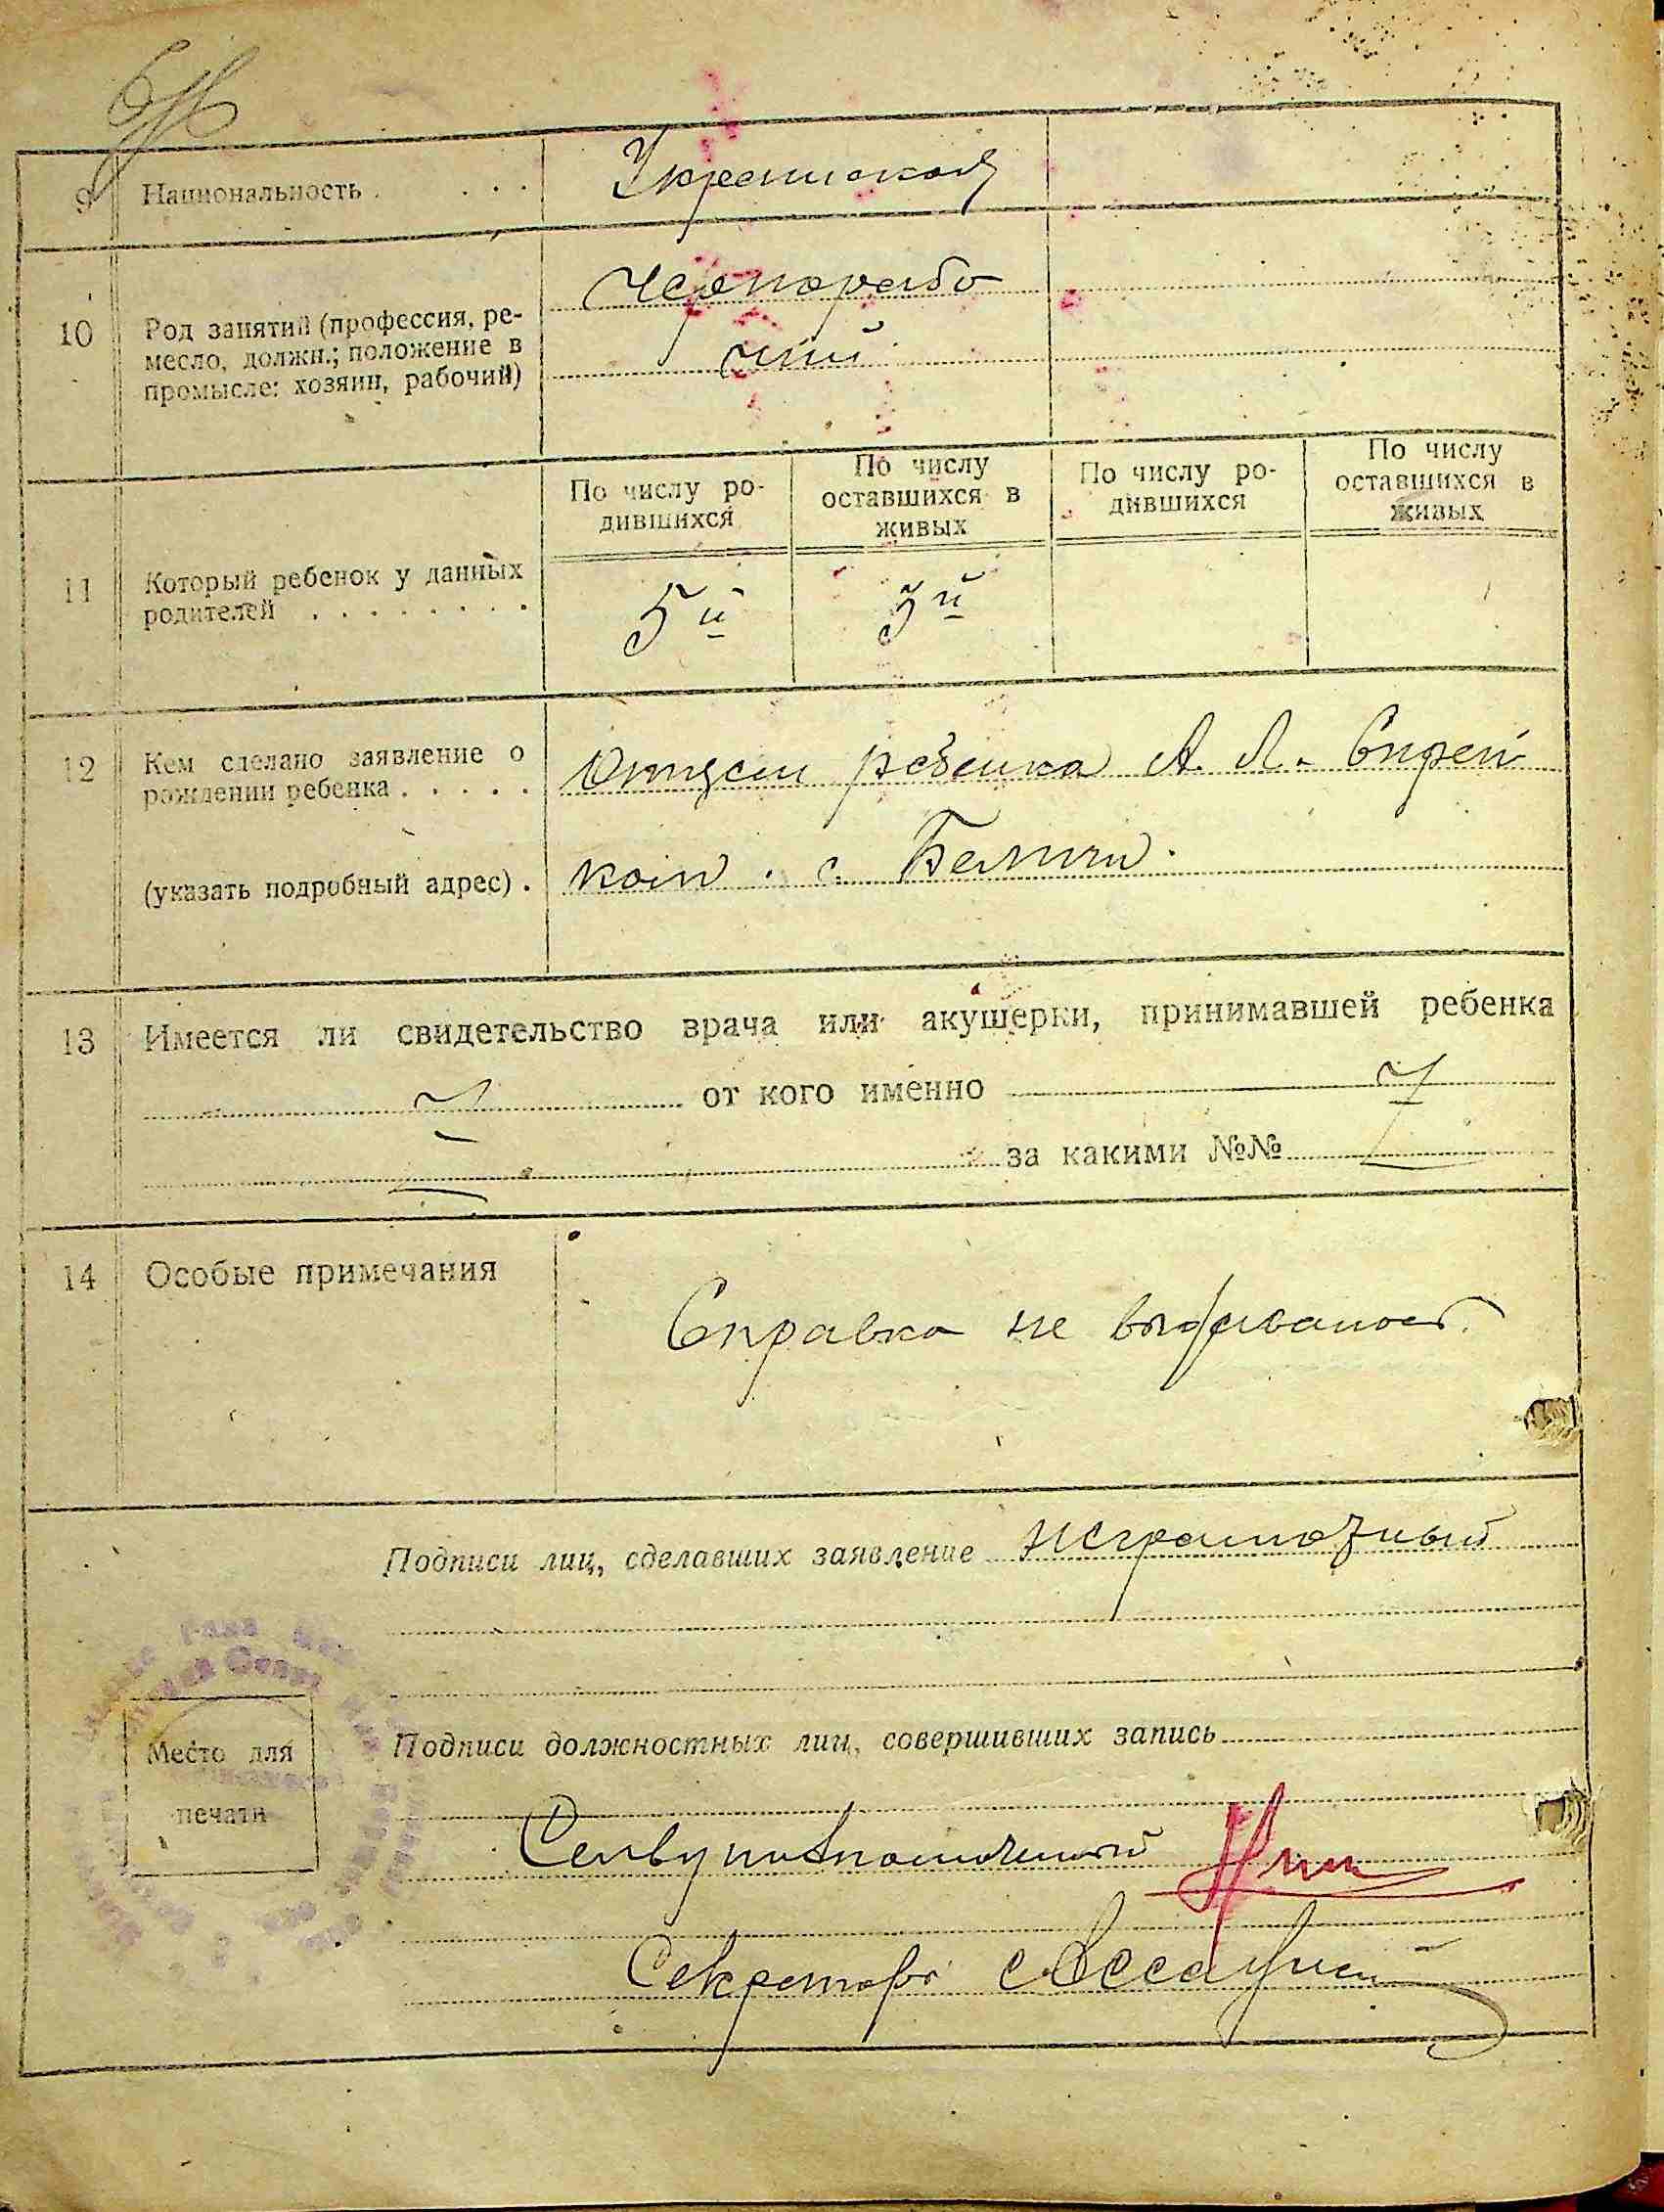 9 Национальность . . . . Украинская
10 Род занятий (профессия, ре-
месло, должн.; положение в
промысле: хозяин, рабочий)
чернорабо
чий
11 Который ребенок у данных
родителей . . . . . . . .
По числу ро-
дившихся
По числу
оставшихся в
живых
По числу ро-
дившихся
По числу
оставшихся в
живых
5й 3й
12 Кем сделано заявление о
рождении ребенка . . . . .
(указать подробный адрес) .
Отцем ребенка А. Л.
с. Беличи.
13 Имеется ли свидетельство врача или акушерки, принимавшей ребенка
от кого именно
за какими №№
14 Особые примечания
Справка не выдавалась.
Подписи лиц, сделавших заявление неграмотный
Место для
печати
Подписи должностных лиц, совершивших запись
Секретарь